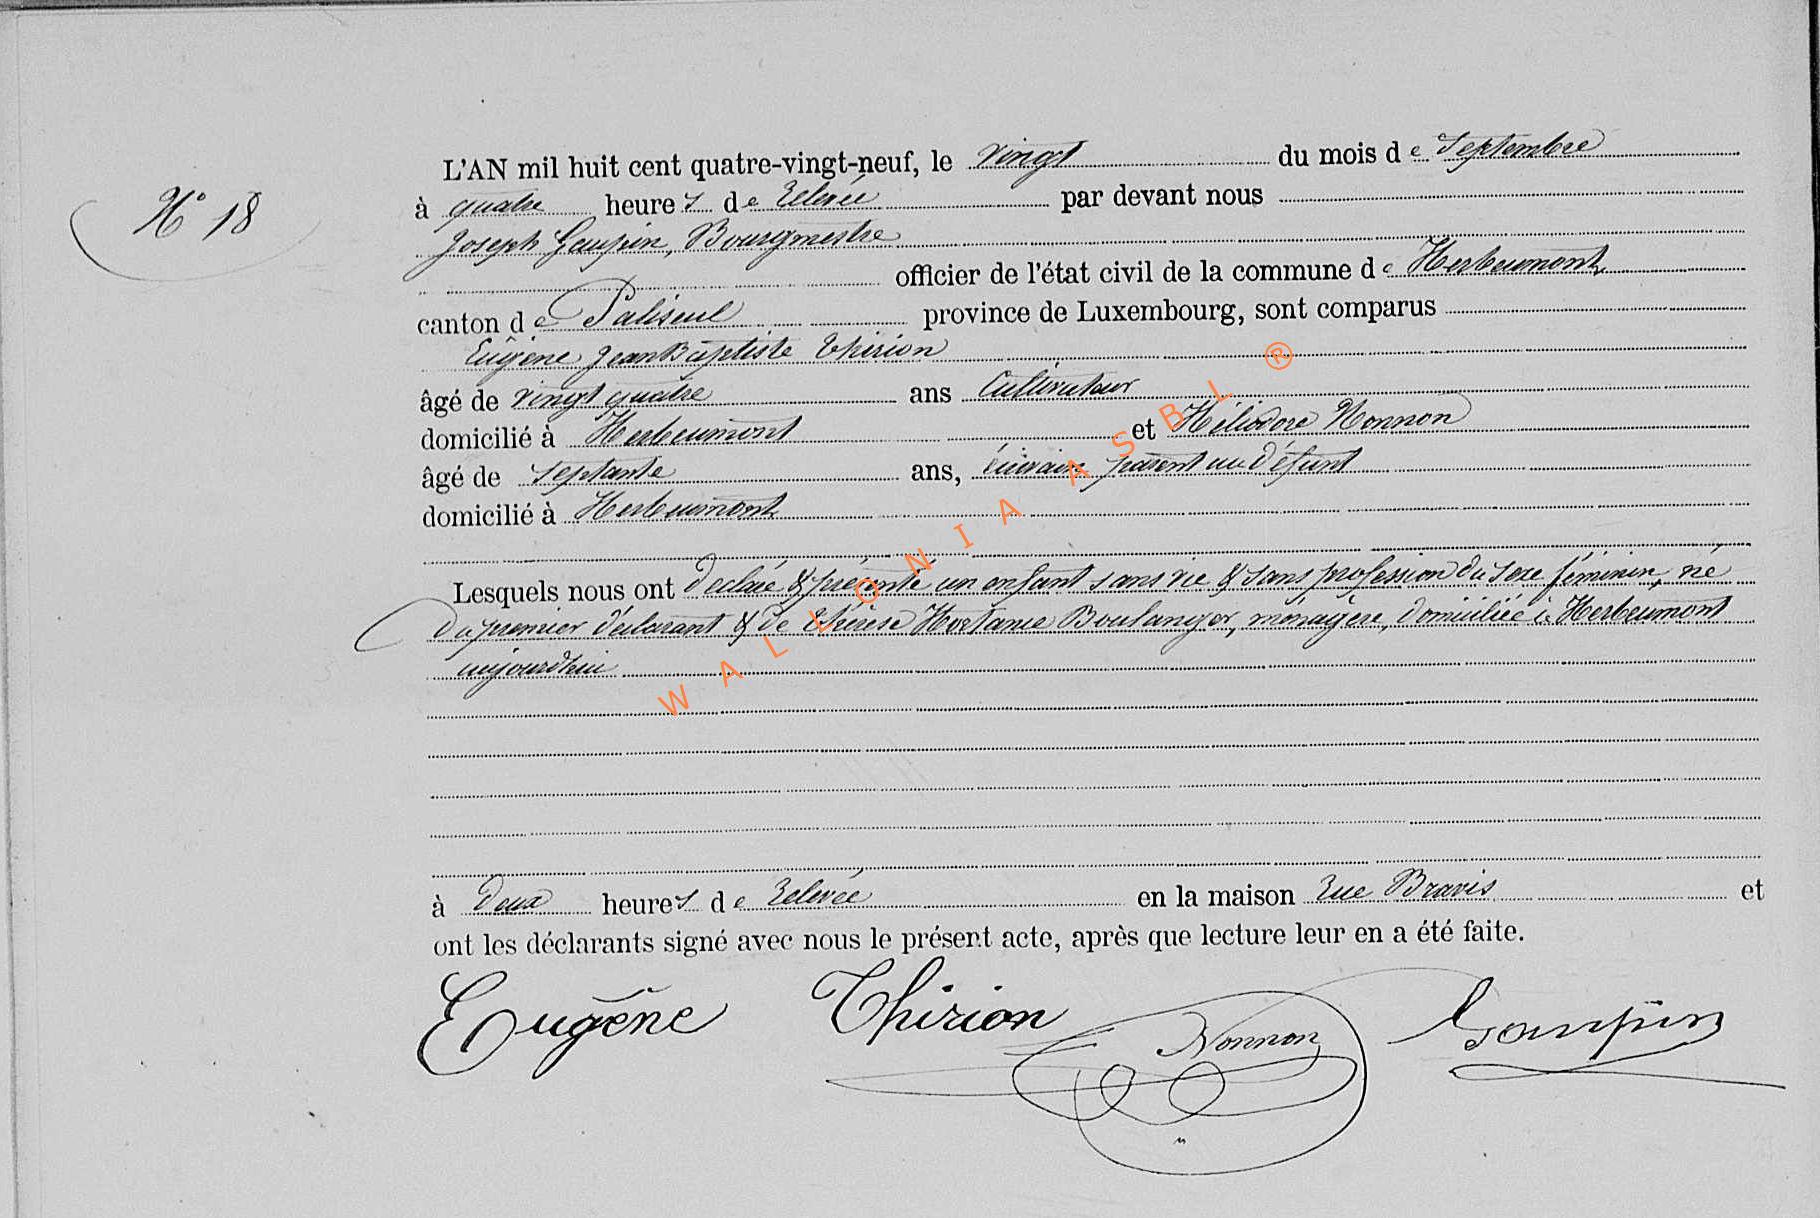 L'AN mil huit cent quatre-vingt-neuf, le vingt du mois de Septembre
N° 18
à quatre heures de relevée par devant nous
Joseph Gaupin, Bourgmestre
officier de l'état civil de la commune de Herbeumont
canton de Paliseul province de Luxembourg, sont comparus
Eugène Jean Baptiste Thirion
âgé de vingt quatre ans Cultivateur
domicilié à Herbeumont et Héliodore Nonnon
âgé de septante ans, parent au défunt
domicilié à Herbeumont
Lesquels nous ont déclaré & présenté un enfant sans vie & sans profession du sexe féminin, né
du premier déclarant & de Thérèse Hortense Boulanger, ménagère, domiciliée à Herbeumont
aujourd'hui
à deux heures de relevée en la maison rue Bravis et
ont les déclarants signé avec nous le présent acte, après que lecture leur en a été faite.
Eugène Thirion Nonnon Gaupin
WALLONIA ASBL ®